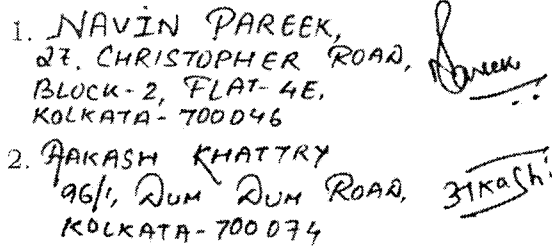 1. NAVIN PAREEK,
27. CHRISTOPHER ROAD,
BLOCK-2, FLAT-4E.
KOLKATA-700046
Pareek
2. AAKASH KHATTRY
96/1, DUM DUM ROAD,
KOLKATA-700074
आkash